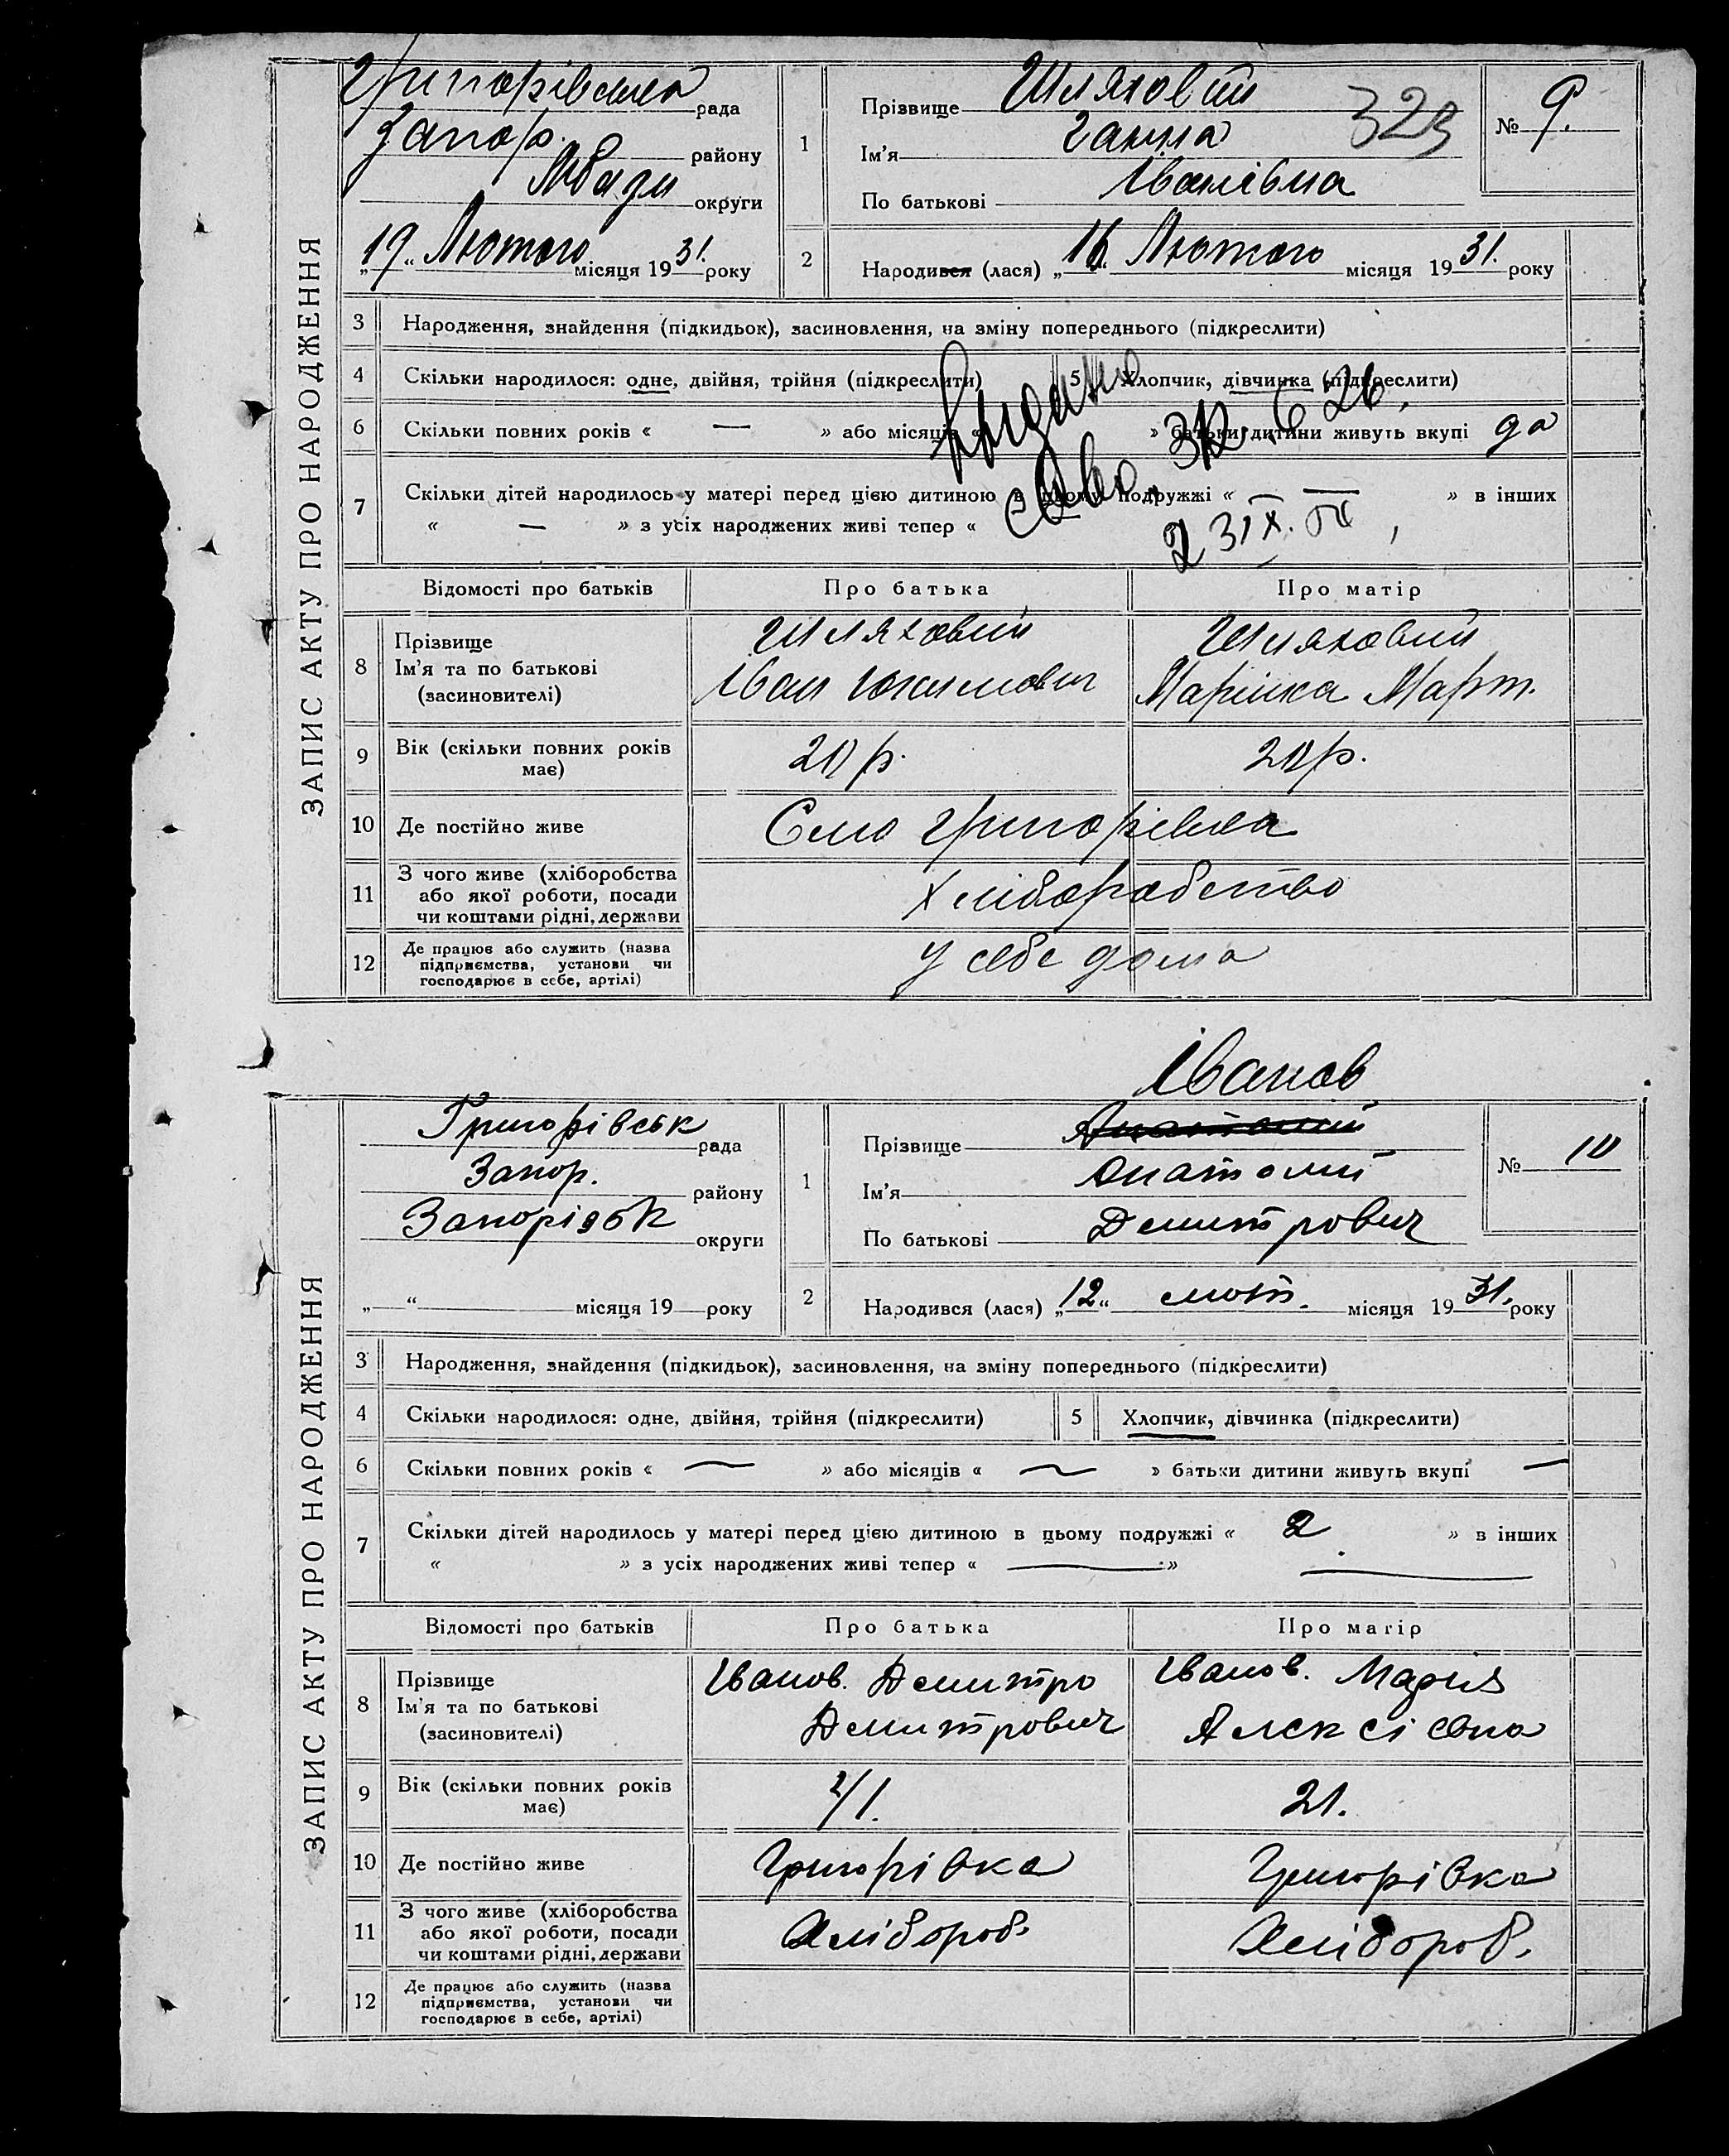 ЗАПИС АКТУ ПРО НАРОДЖЕННЯ
Григорівська рада
Запор. району
округи
„19“ Лютого місяця 1931. року
1 Прізвище Шляховий
Ім'я Ганна
По батькові Іванівна
323
№ 9.
2 Народився (лася) „16“ Лютого місяця 1931. року
3 Народження, знайдення (підкидьок), засиновлення, на зміну попереднього (підкреслити)
4 Скільки народилося: одне, двійня, трійня (підкреслити) 5 Хлопчик, дівчинка (підкреслити)
6 Скільки повних років « — » або місяців « » батьки дитини живуть вкупі да
Выдано
свво. ЗК. 626.
7 Скільки дітей народилось у матері перед цією дитиною в цьому подружжі « — » в інших
« — » з усіх народжених живі тепер «
Відомості про батьків Про батька Про матір
8 Прізвище
Ім'я та по батькові
(засиновителі)
Шляховий
Іван
Шляховий
Марійка Март.
9 Вік (скільки повних років має) 20 р. 20 р.
10 Де постійно живе Село Григорівка
11 З чого живе (хліборобства або якої роботи, посади чи коштами рідні, держави Хліборобство
12 Де працює або служить (назва підприємства, установи чи господарює в себе, артілі) у себе дома
ЗАПИС АКТУ ПРО НАРОДЖЕННЯ
Григорівськ рада
Запор. району
Запорізьк округи
„ “ місяця 19 року
Іванов
1 Прізвище Анатолий
Ім'я Анатолий
По батькові Демитрович
№ 10
2 Народився (лася) „12“ лют. місяця 1931. року
3 Народження, знайдення (підкидьок), засиновлення, на зміну попереднього (підкреслити)
4 Скільки народилося: одне, двійня, трійня (підкреслити) 5 Хлопчик, дівчинка (підкреслити)
6 Скільки повних років « — » або місяців « — » батьки дитини живуть вкупі —
7 Скільки дітей народилось у матері перед цією дитиною в цьому подружжі « 2 » в інших
« » з усіх народжених живі тепер « — »
Відомості про батьків Про батька Про матір
8 Прізвище
Ім'я та по батькові
(засиновителі)
Іванов. Демитро
Демитрович
Іванов. Мария
Алексісвна
9 Вік (скільки повних років має) 21. 21.
10 Де постійно живе Григорівка Григорівка
11 З чого живе (хліборобства або якої роботи, посади чи коштами рідні, держави Хлібороб. Хлібороб.
12 Де працює або служить (назва підприємства, установи чи господарює в себе, артілі)